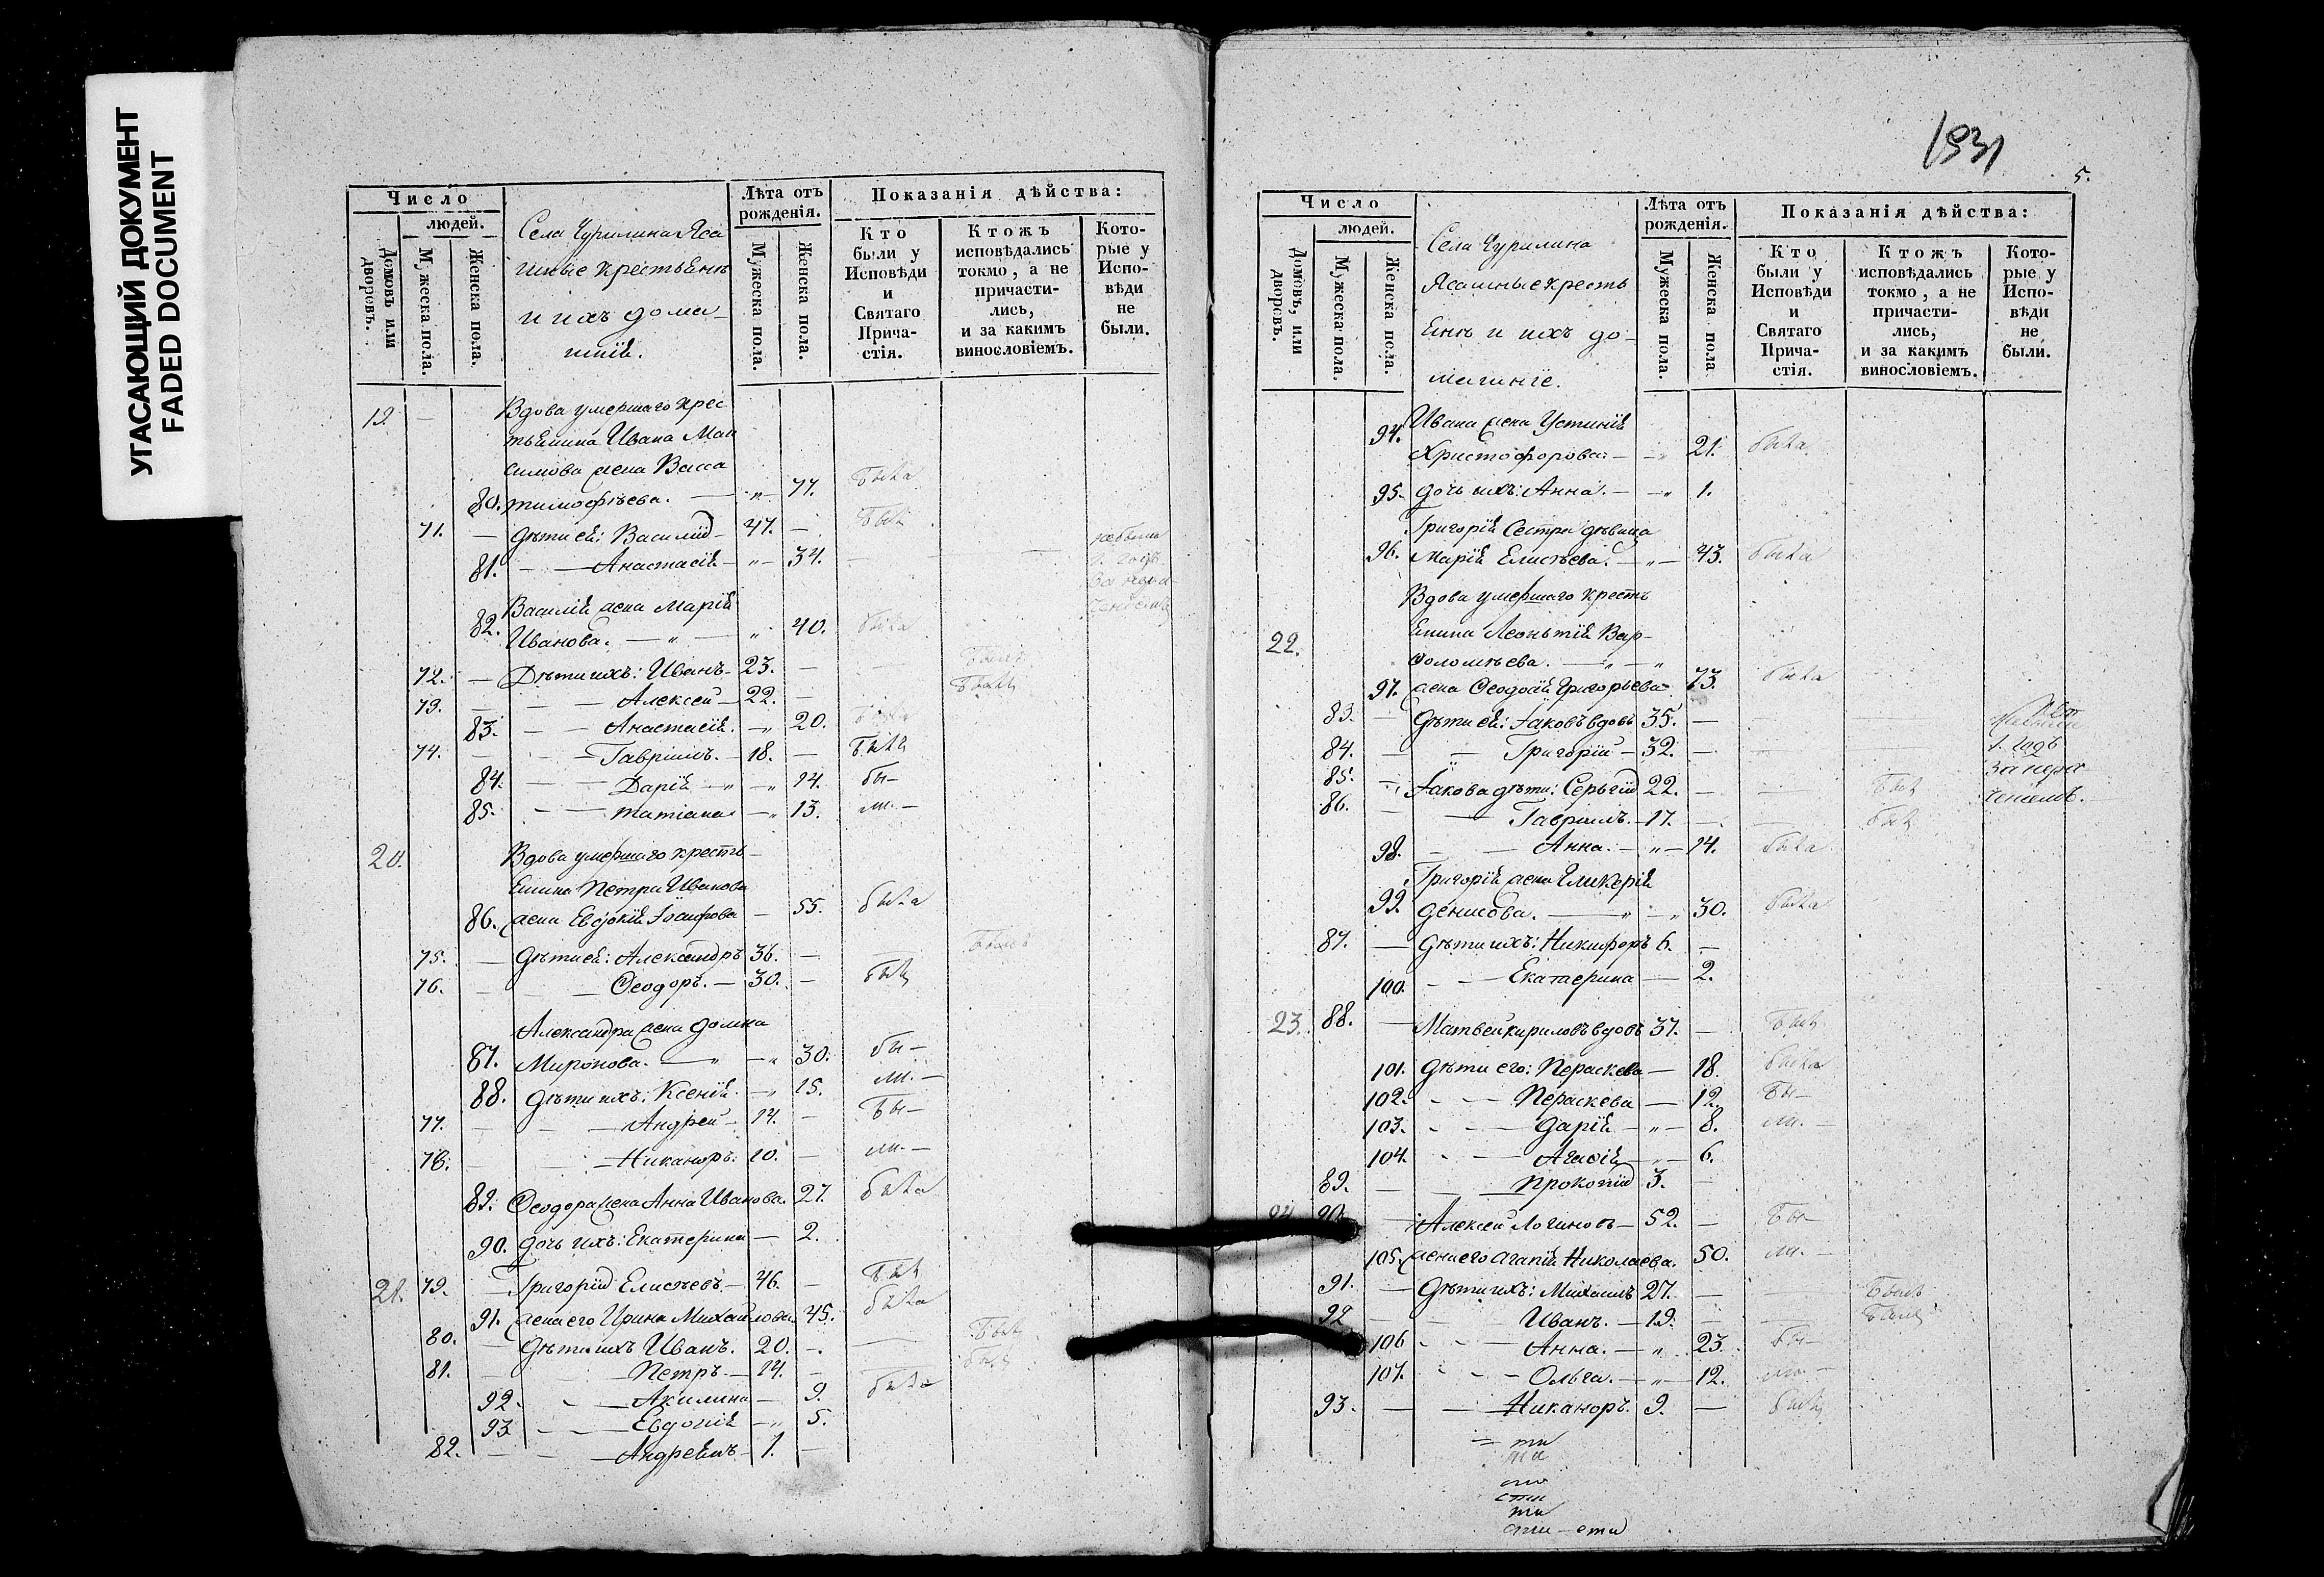 УГАСАЮЩИЙ ДОКУМЕНТ
FADED DOCUMENT
Число
людей.
Домовъ или дворовъ.
Мужеска пола.
Женска пола.
Села Чурилина Яса
шные крестьяне
и ихъ дома-
шнія.
Лѣта отъ рожденія.
Мужеска пола.
Женска пола.
Показанія дѣйства:
Кто были у Исповѣди и Святаго Прича-стія.
Ктожъ исповѣдались токмо, а не причасти-лись, и за какимъ винословіемъ.
Кото-рые у Испо-вѣди не были.
19. — Вдова умершаго крес
тьянина Ивана Мак
симова жена Васса
80. тимофѣева. — „ — 77. была
71. — дѣти ея: Василій — 47. — былъ
81. — — Анастасія — „ — 34. —
Василія жена Марія
82. Иванова. — „ — „ 40. была
72. — Дѣти ихъ: Иванъ — 23. — былъ
73. — — Алексей — 22. — былъ
83. — — Анастасія. — „ 20. была
74. — — Гавріилъ. — 18. — былъ
84. — — Дарія — „ — „ 14. бы—
85. — — татіана — „ 13. ли. —
20. Вдова умершаго кресть—
янина Петра Иванова
86. жена Евдокія Іосифова — 55. была
75. — дѣти ея: Александръ 36. — былъ
76. — — Ѳеодоръ. — 30. — былъ
Александра жена домна
87. Миронова. — „ — „ 30. бы—
88. дѣти ихъ: Ксенія. — „ 15. ли. —
77. — — Андрей — 14. — бы—
78. — — Никаноръ: 10. — ли. —
89. Ѳеодора жена Анна Иванова. 27. была
90. дочь ихъ: Екатерина — 2.
21. 79. — Григорій Елисѣевъ. — 46. — былъ
91. жена его Ирина Михайлова. 45. была
80. — дѣти ихъ Иванъ. 20. — былъ
81. — — Петръ. — 14. — былъ
92. — — Акилина — 9. была
93. — — Евдокія — „ 5.
82. — — Андреянъ — 1. —
1831
5.
Число
людей.
Домовъ, или дворовъ.
Мужеска пола.
Женска пола.
Села Чурилина
Ясашные кресть
яне и ихъ до-
машніе.
Лѣта отъ рожденія.
Мужеска пола.
Женска пола
Показанія дѣйства:
Кто были у Исповѣди и Святаго Прича-стія.
Ктожъ исповѣдались токмо, а не причасти-лись, и за какимъ винословіемъ.
Кото-рые у Испо-вѣди не были.
94. Ивана жена Устинія
Христофорова — „ 21. была
95. дочь ихъ: Анна. — „ 1.
Григорія Сестра дѣвица
96. Марія Елисѣева. — „ — 43. была
Вдова умершаго кресть
22. янина Леонтія Вар-
ѳоломѣева. — „ — „
97. жена Ѳеодосія Григорьева 73. была
83. — дѣти ея: Іаковъ вдовъ 35. —
84. — — Григорій — 32. — 1. годъ
85. — Іакова дѣти: Сергій 22. — былъ
86. — — Гавріилъ. — 17. — былъ
98. — — Анна. — „ — 14. была
Григорія жена Гликерія
99. денисова. — „ — „ 30. была
87. — дѣти ихъ: Никифоръ 6. —
100. — — Екатерина — 2.
23. 88. — Матвей кириловъ вдовъ 37. — былъ
101. дѣти его: Параскева — 18. была
102. — — Параскева — 12. бы—
103. — — дарія — „ — 8. ли. —
104. — — Агафія — „ — 6.
89. — — Прокопій 3. —
24. 90. — Алексей Логиновъ — 52. — бы—
105. жена его Агапія Николаева. 50. ли. —
91. — дѣти ихъ: Михаилъ 27. — былъ
92 — — Иванъ. — 19. — былъ
106 — — Анна. — „ 23. бы—
107. — — Ольга. — „ — 12. ли. —
93. — — Никаноръ. 9. — былъ